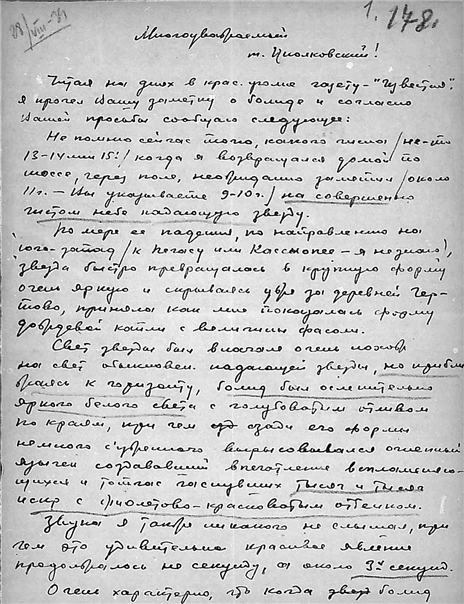 28/VIII-34
1.
148.
Многоуважаемый
т. Циолковский!
Читая на днях в крас. уголке газету - "Известия",
я прочел Вашу заметку о болиде и согласно
Вашей просьбы сообщаю следующее:
Не помню сейчас того, какого числа /не-то
13-14 или 15!/ когда я возвращался домой по
шоссе, через поле, неожиданно заметил /около
11 г. - Вы указываете 9-10 г./ на совершенно
чистом небе падающую звезду.
По мере ее падения, по направлению на
юго-запад /к Пегасу или Кассиопее - я не знаю/,
звезда быстро превращалась в крупную форму
очень яркую и скрываясь уже за деревней
приняла как мне показалась форму
дождевой капли с величины
Свет звезды был вначале очень похож
на свет обыкновен. падающей звезды, но прибли
жаясь к горизонту, болид был ослепительно
яркого белого света с голубоватым отливом
по краям, при чем сзади его формы
немного суженного вырисовывался огненный
язычек создававший впечатление вспламеняю-
щихся и тотчас гаснувших тысяч и тысяч
искр с фиолетово-красноватым оттенком.
Звука я также никакого не слышал, при
чем это удивительно красивое явление
продолжалось не секунду, а около 3х секунд.
Очень характерно, что когда болид